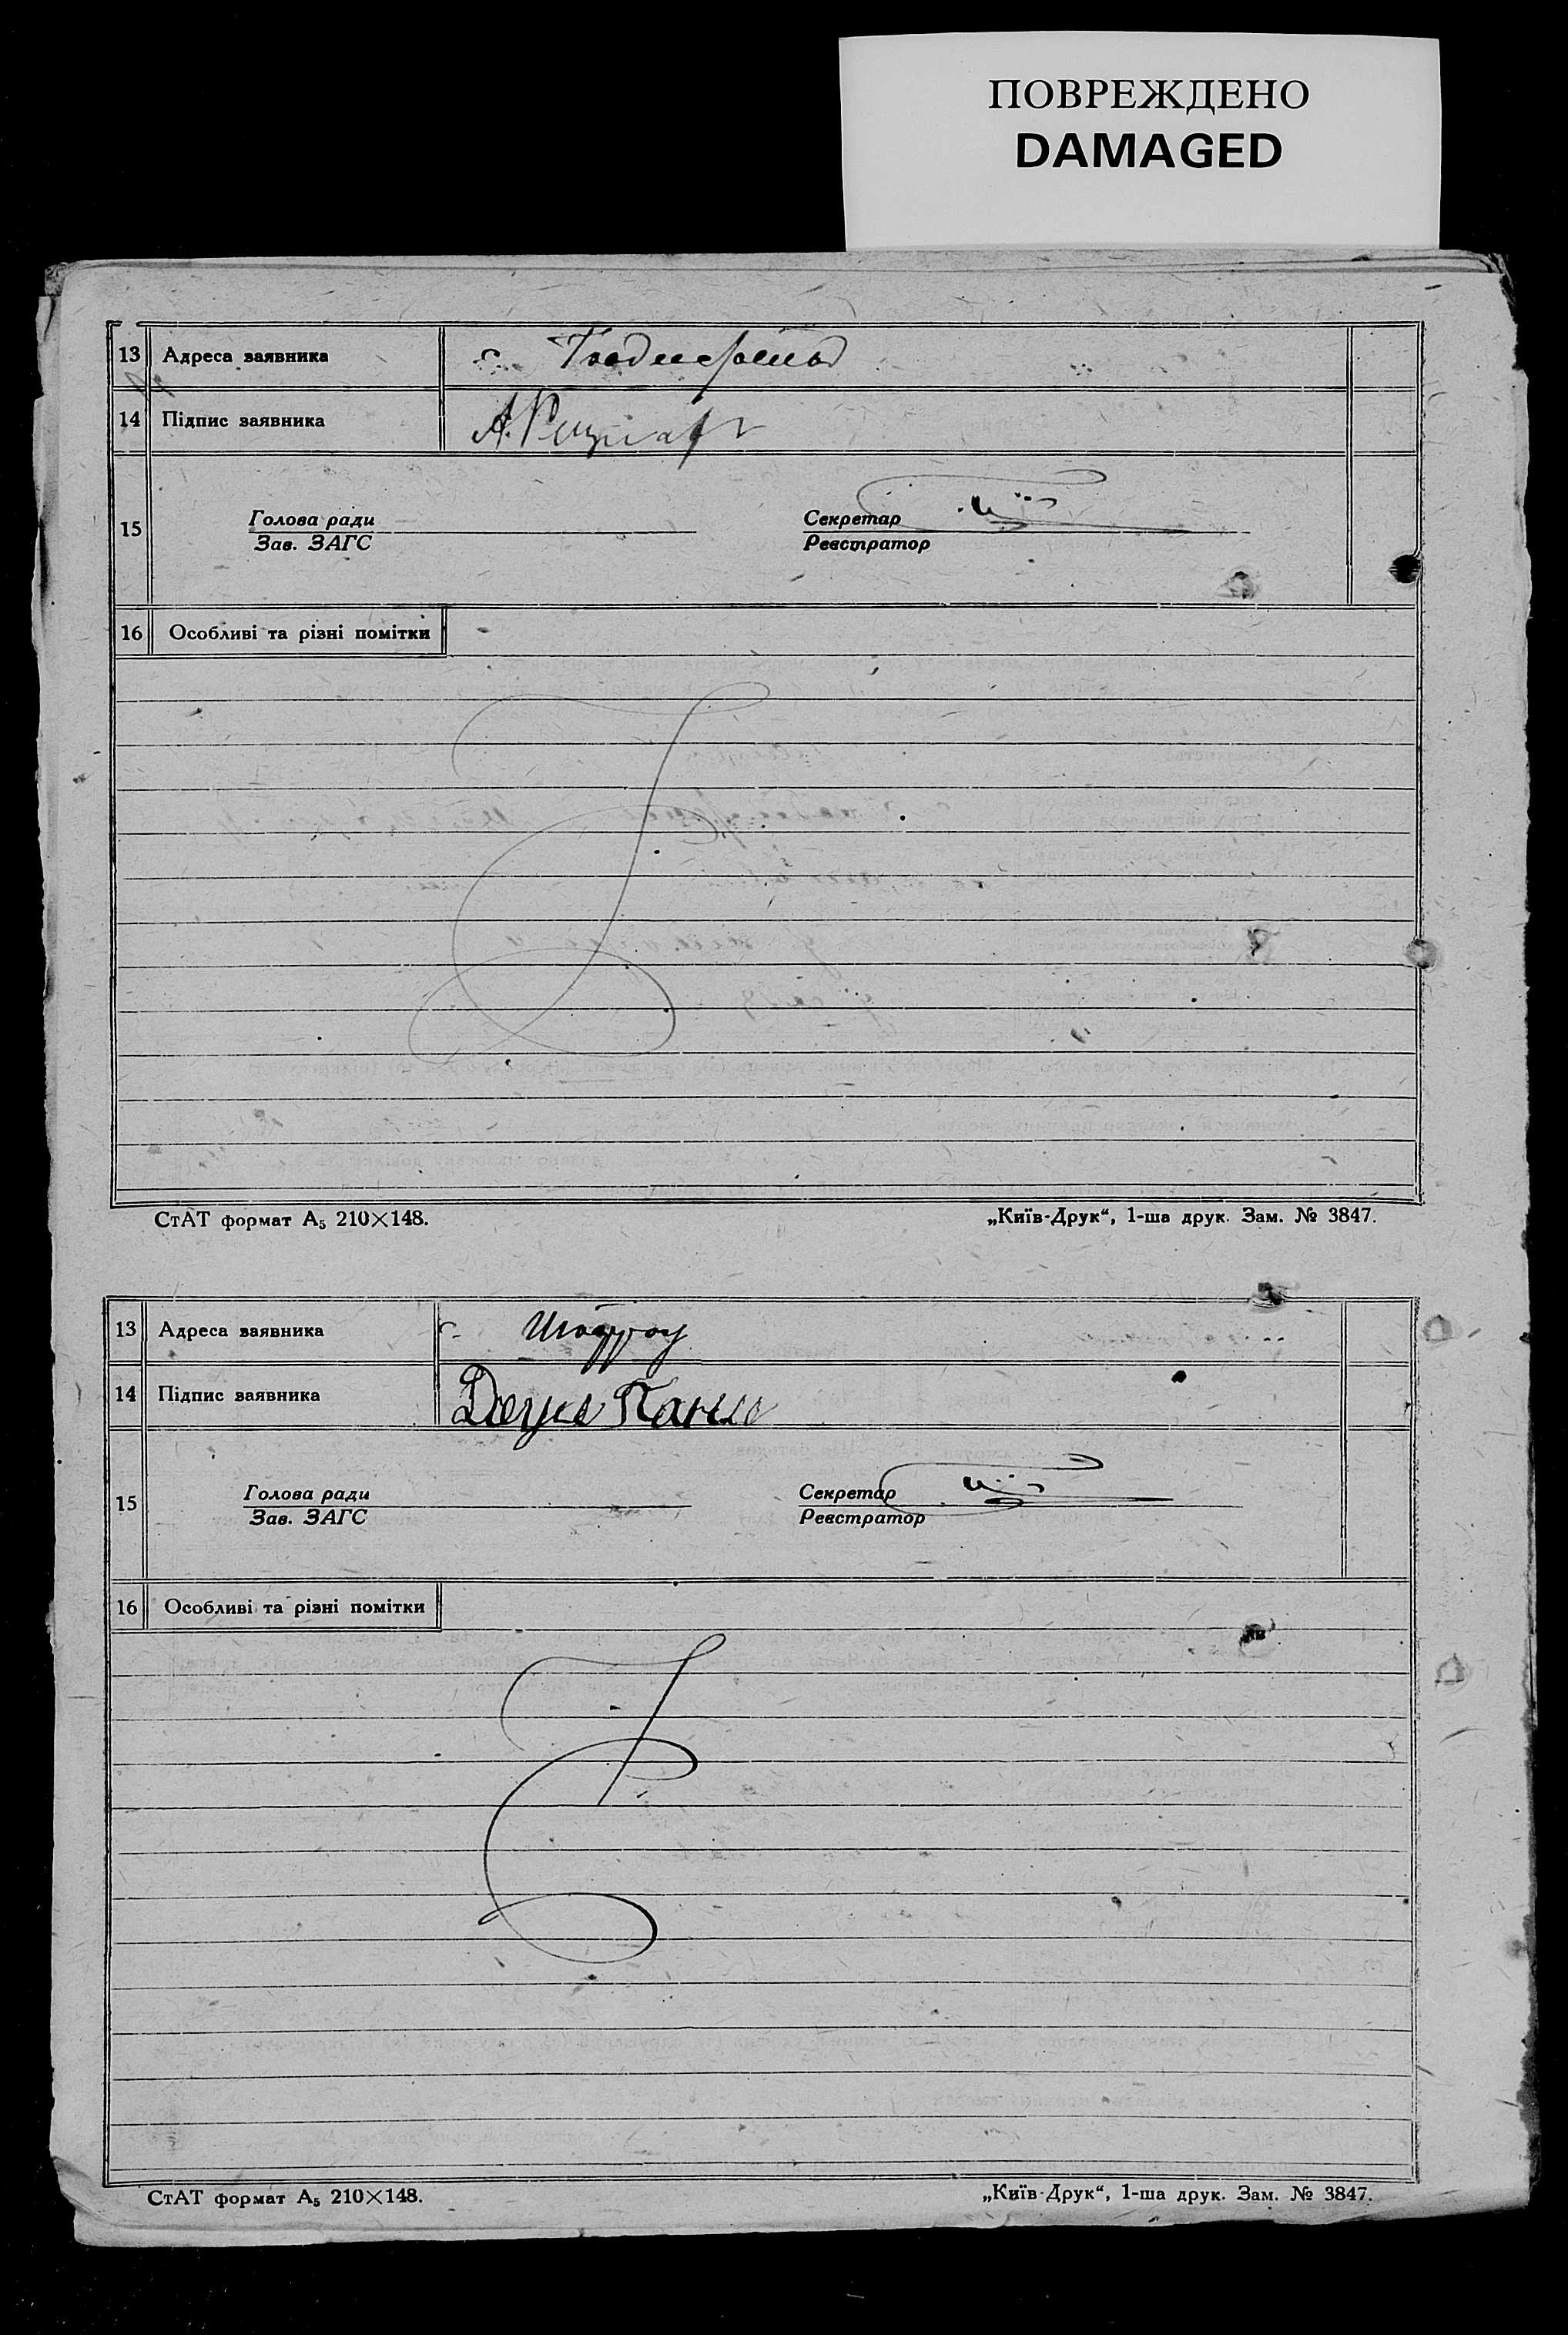 ПОВРЕЖДЕНО
DAMAGED
13 Адреса заявника с.
14 Підпис заявника А.
15 Голова ради Секретар
Зав. ЗАГС Реєстратор
16 Особливі та різні помітки
СтАТ формат А₅ 210×148. „Київ-Друк“, 1-ша друк. Зам. № 3847.
13 Адреса заявника с.
14 Підпис заявника
15 Голова ради Секретар
Зав. ЗАГС Реєстратор
16 Особливі та різні помітки
СтАТ формат А₅ 210×148. „Київ-Друк“, 1-ша друк. Зам. № 3847.